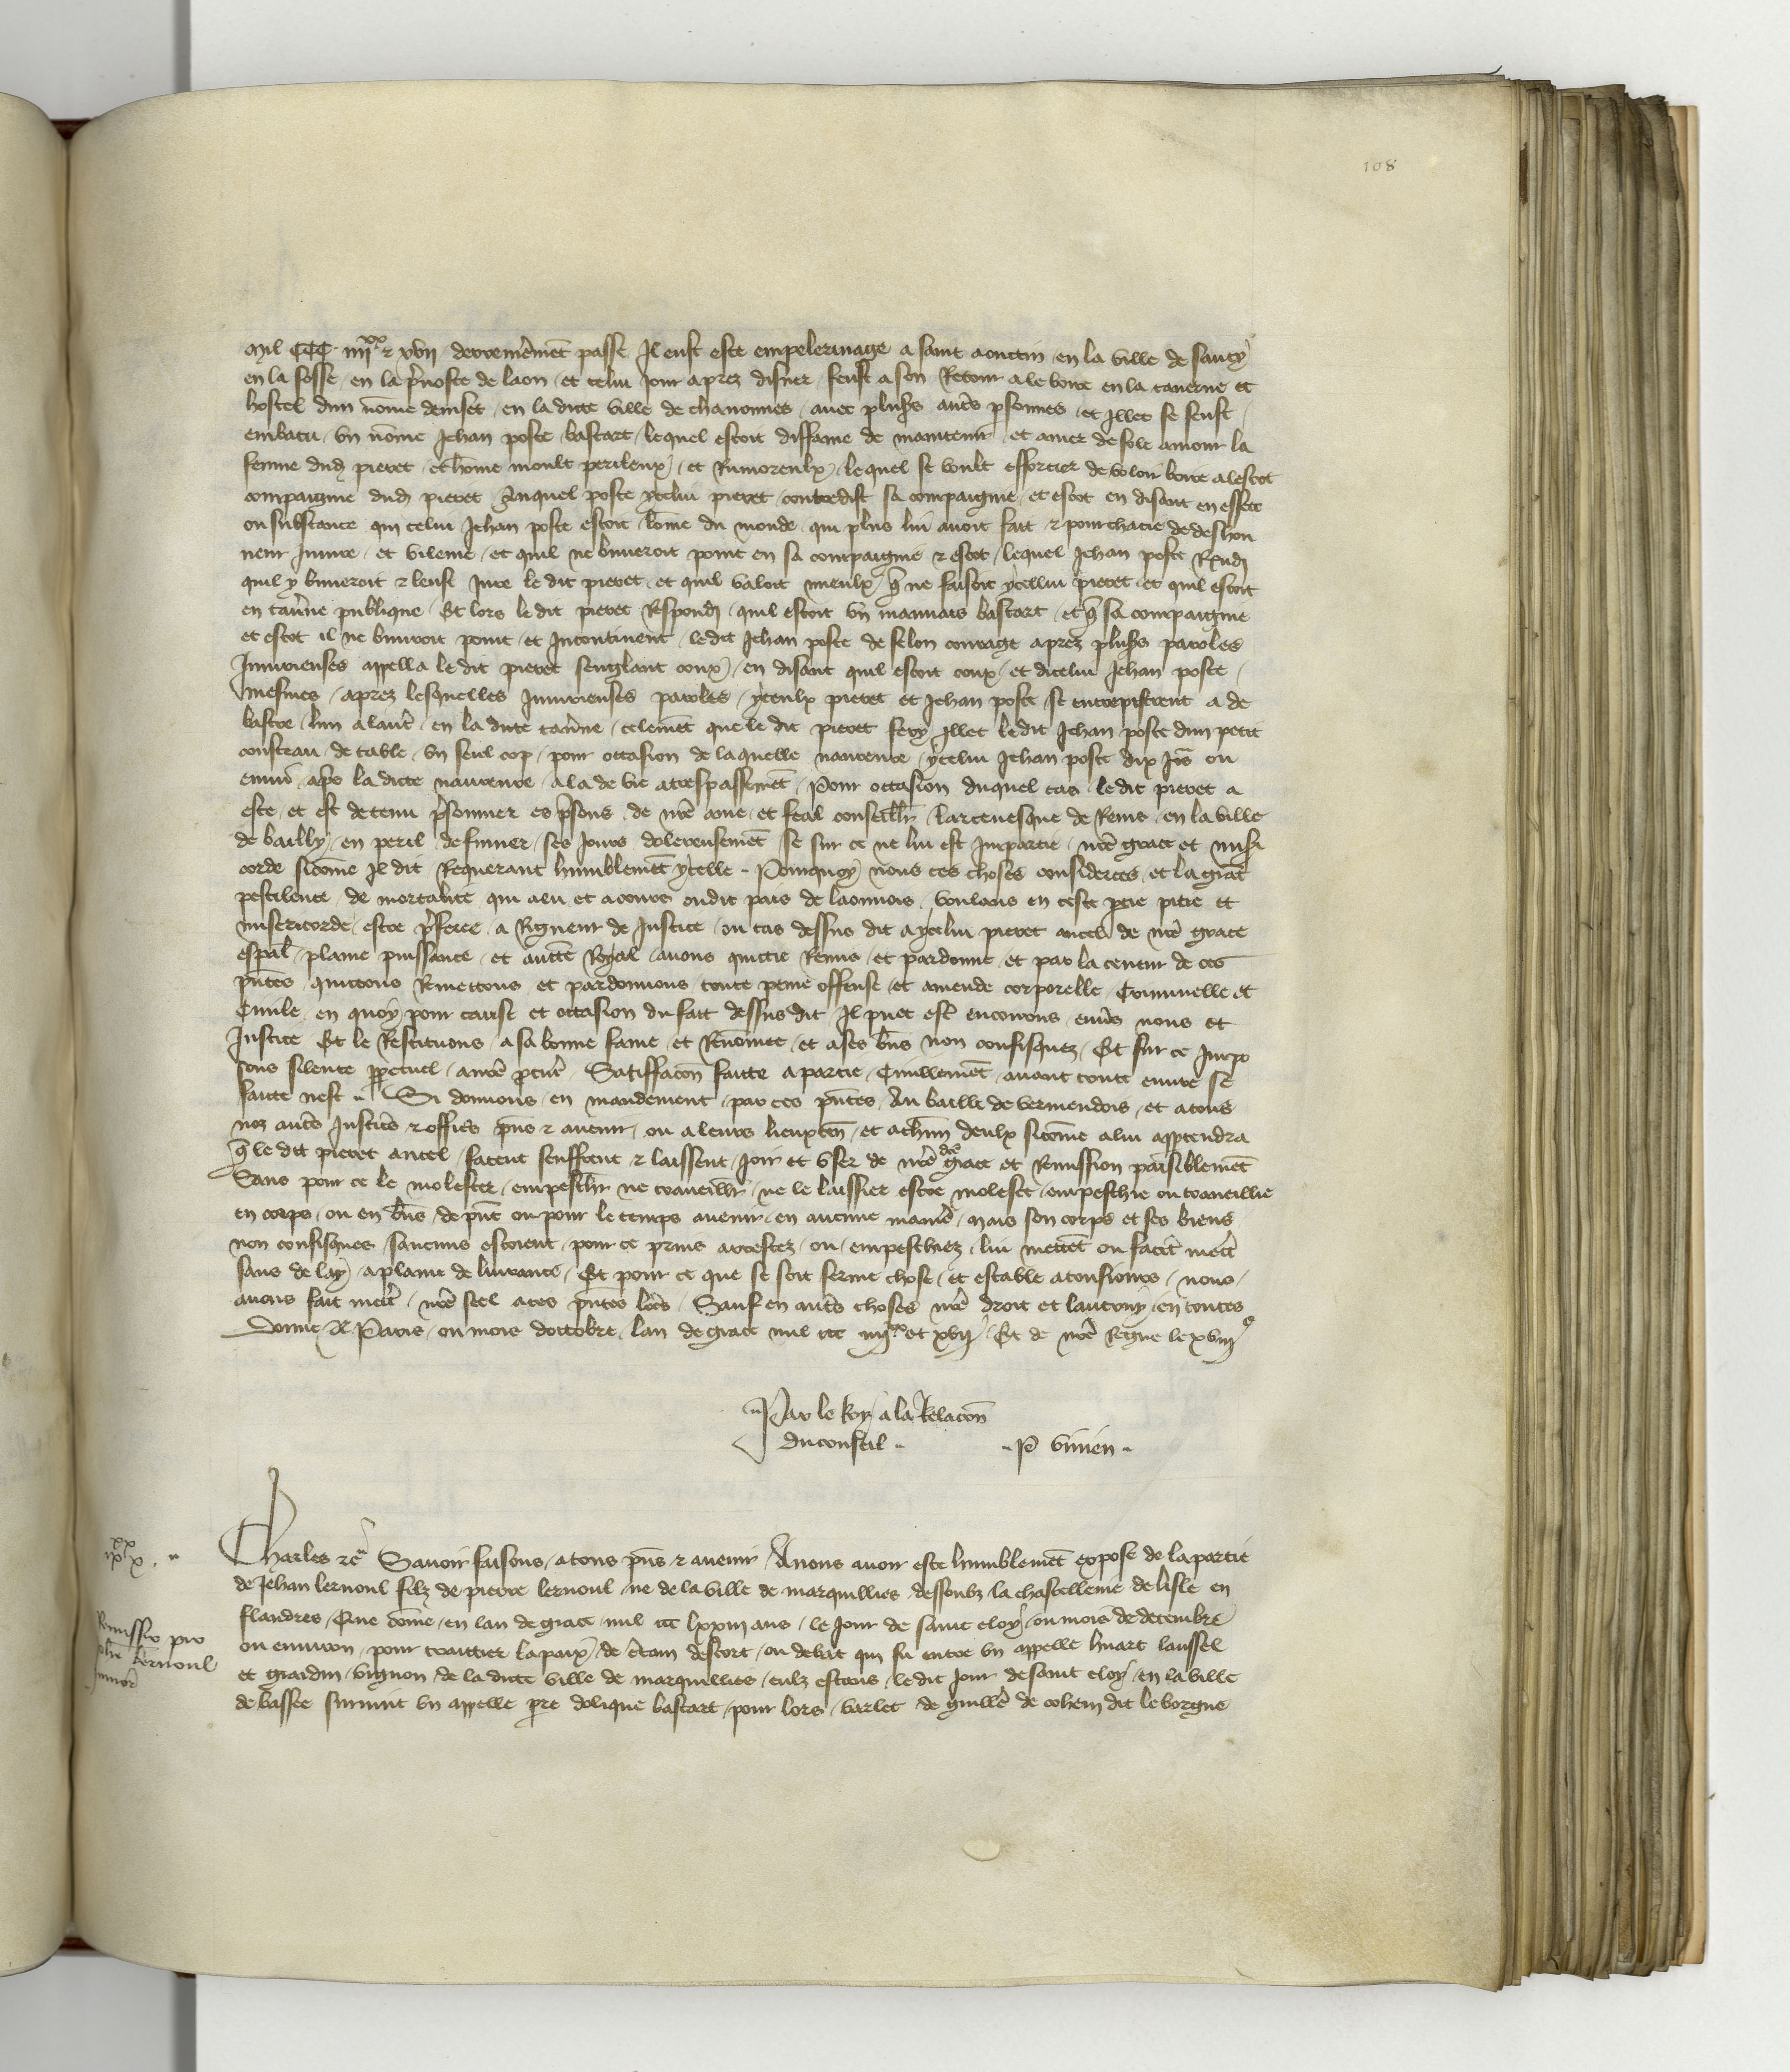 108
mil CCC iiii xx et xvii derrenieremēt passé Il eust este empelerinage a saint en la ville de sancy
en la fosse en la pͬuoste de laon et celui Jour aprez disner feust a son Retour ale boire en la tauerne et
hostel dun nōme deniset en la dicte ville de chauonnes auec plusͬs autͬs psonnes et Illec se feust
embatu vn nōme Jehan poste bastart lequel estoit diffame de maintenir et amer de fole amour la
femme dud pieret et hōme moult perileux et Rumoreulx lequel se voult efforcier de voloir boire a lescot
compaignie dud pieret auquel poste ycelui pieret contredist sa compaignie et escot en disant en effect
ou substance qui celui Jehan poste estoit lōme du monde qui plus lui auoit fait et pourchacie de deshon
neur Iniure et vilenie et quil ne buueroit point en sa compaignie et escot lequel Jehan poste Rendͥ
quil y buueroit et leust Iure le dit pieret et quil valoit mieulx q̄ ne faisoit ycellui pieret et quil estoit
en tauͬne publique Et lors le dit pieret Respondͥ quil estoit vn mauuais bastart et q̄ sa compaignie
et escot il ne buuroit point et Incontinent ledit Jehan poste de felon courage aprez plusͬs paroles
Iniurieuses appella le dit pieret senglant coux en disant quil estoit coux et dicelui Jehan poste
mesmes aprez lesquelles Iniurieuses paroles yceulx pieret et Jehan poste se entreprirent a de
batre lun a lautͬ en la dicte tauͬne telemēt que le dit pieret fery Illec le dit Jehan poste dun petit
consteau de table vn seul cop pour occasion de laquelle naureure ycelui Jehan poste dix Jrs ou
enuiͬ apͬs la dicte naureure ala de vie a trespassemēt Pour occasion duquel cas le dit pieret a
este et est detenu pͬsonnier es pͬsons de nrē ame et feal conseillͬ larceuesque de Reins en la ville
de bailly en peril de finner ses Jours dolereusemēt se sur ce ne lui est Impartie nrē grace et misͥ
corde sicōme Il dit Requerant humblemēt ycelle Pourquoy nous ces choses considerees et la grāt
pestilence de mortalite qui a eu et a cours oudit pais de laonnois voulans en ceste ptie pitie et
misericorde estre pͬferee a Rigueur de Justice ou cas dessus dit a ycelui pieret ancel de nrē grace
espāl plaine puissance et auctē Royal auons quictie Remis et pardonne et par la teneur de ces
pn̄tes quictons Remettons et pardonnons toute peine offense et amende corporelle Criminelle et
Ciuile en quoy pour cause et occasion du fait dessus dit Il puet estͬ encourons enuͬs nous et
Justice Et le Restituons a sa bonne fame et Renōmee et a ses bn̄s non confisquez Et sur ce Impo
sons silence ppetuel a nrē pcurͬ Satiffacōn faicte a partie Ciuillemēt auant toute euure se
faicte nest Si donnons en mandement par ces pn̄tes Au bailli de vermendois et a tous
noz autͬs Justicͬs et officͬs pn̄s et auenir ou a leurs lieuxten̄ et a chūn deulx sicōme a lui appartendra
q̄ le dit pieret ancel facent seuffrent et laissent Joir et vser de nrē dcē grace et Remission paisiblemēt
Sans pour ce le molester empeschͬ ne traueillͬ ne le laissier estre moleste empeschie ou traueillie
en corps ou en bn̄s de pn̄t ou pour le temps auenir en aucune maniͬe Mais son corps et ses biens
non confisques saucuns estoient pour ce prins arrestez ou empeschiez lui mettēt ou facēt mectͬ
sans delay a plaine deliurance Et pour ce que se soit ferme chose et estable a tousiours nous
auons fait mectͬ nrē seel a ces pn̄tes lrēs Sauf en autͬs choses nrē droit et lautruy en toutes
Donne A Paris ou mois doctobre lan de grace mil ccc iiii xx et xvii Et de nrē Regne le xviii e
Par le Roy a la Relacōn
du conseil P vinien
ix xx x
Charles etc̄ Sauoir faisons a tous pn̄s et auenir Anous auoir este humblemēt expose de la partie
Remissio pro
Johē lernoul
Iunior
de Jehan lernoul filz de pierre lernoul ne de la ville de marquillies dessoubz la chastellenie de lisle en
flandres Que cōme en lan de grace mil ccc lxxiii ans le Jour de saint eloy ou mois de decembre
ou enuiron pour traittier la paix de cͬtain descort ou debat qui fu entre vn appelle huart laussel
et grardin vignon de la dicte ville de marquillies eulz estans ledit Jour de saint eloy en la ville
de bassee suruint vn appelle pre dolique bastart pour lors varlet de guillͬe de cohem dit le borgne